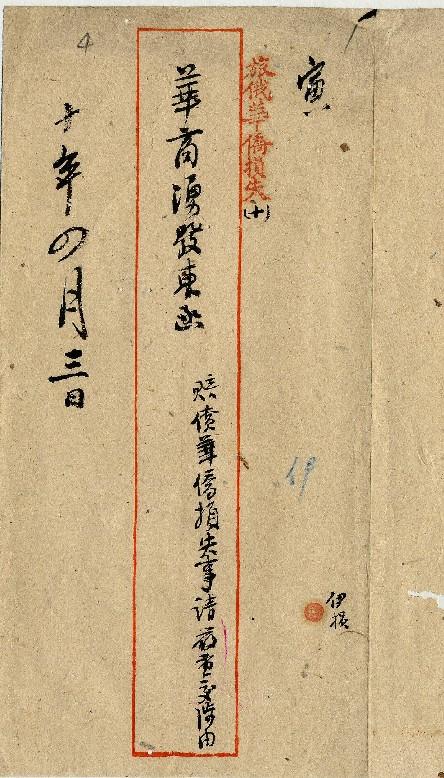 寅
伊損
旅俄華僑損失(十)
華商湧發東函
賠償華僑損失事請嚴重交涉由
十年四月三日
4